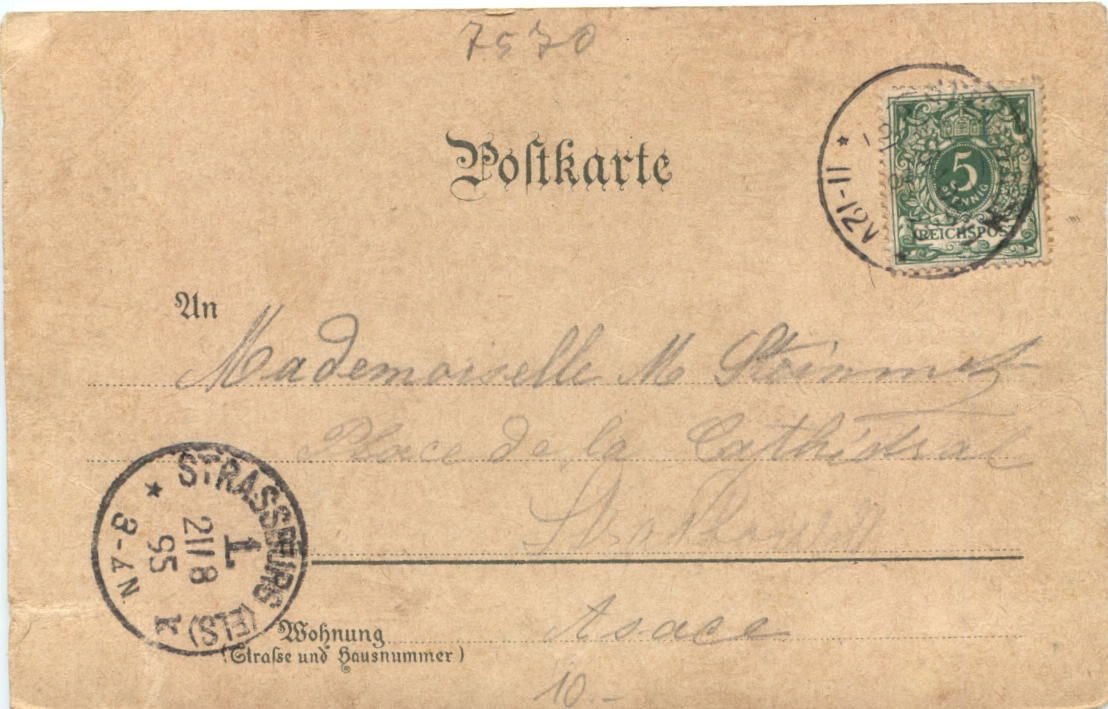 7570
Postkarte
5
PFENNIG
REICHSPOST
11-12V
An
Mademoiselle M Steinmetz
Place de la Cathédral
STRASSBURG (ELS)
1
21/8
95
3-4N
k
Wohnung
(Straße und Hausnummer)
Asace
10.-